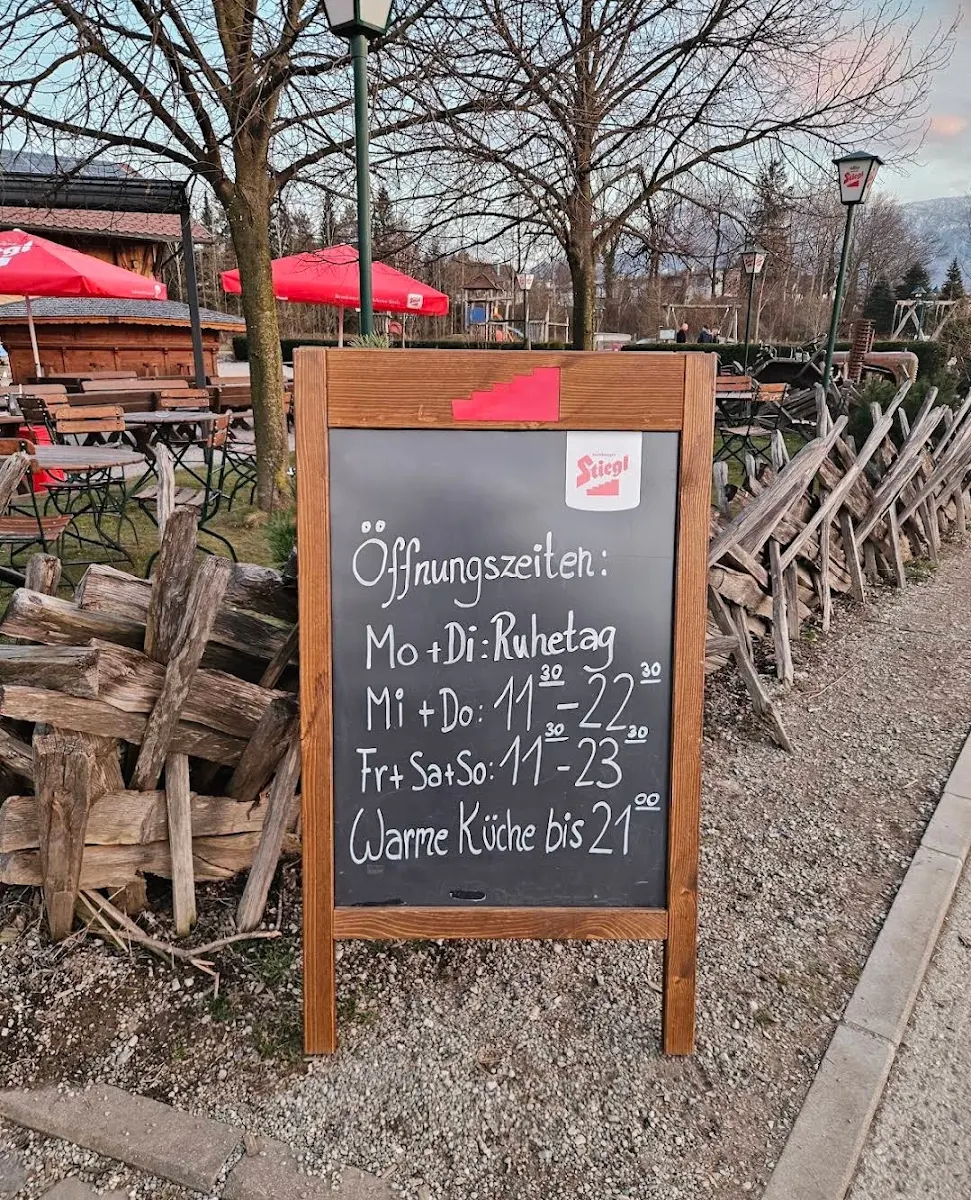 Stiegl
Stiegl
Öffnungszeiten:
Mo + Di: Ruhetag
Mi + Do: 11³⁰ - 22³⁰
Fr + Sa + So: 11³⁰ - 23³⁰
Warme Küche bis 21⁰⁰